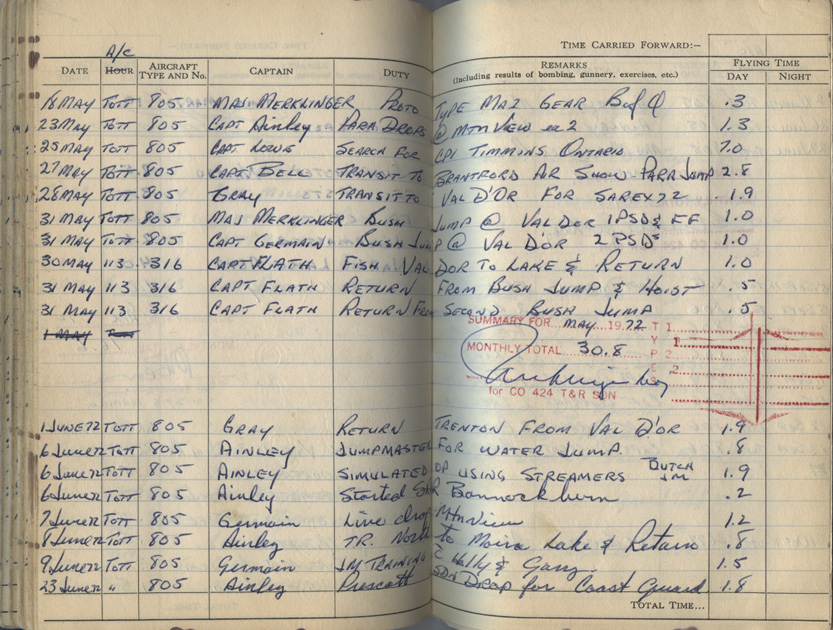 TIME CARRIED FORWARD:–
A/C
DATE HOUR AIRCRAFT TYPE AND No. CAPTAIN DUTY REMARKS (Including results of bombing, gunnery, exercises, etc.) FLYING TIME DAY NIGHT
18 MAY TOTT 805 MAJ MERKLINGER PROTO TYPE MA2 GEAR .3
23 MAY TOTT 805 CAPT AINLEY PARA DROPS @ MTN VIEW 1.3
25 MAY TOTT 805 CAPT SEARCH FOR CPI TIMMINS ONTARIO 7.0
27 MAY TOTT 805 CAPT BELL TRANSIT TO BRANTFORD AIR SHOW - PARA JUMP 2.8
28 MAY TOTT 805 GRAY TRANSIT TO VAL D'OR FOR SAREX 72 1.9
31 MAY TOTT 805 MAJ MERKLINGER BUSH JUMP @ VAL DOR 1 PSDS EF 1.0
31 MAY TOTT 805 CAPT GERMAIN BUSH JUMP @ VAL DOR 2 PSDS 1.0
30 MAY 113 316 CAPT FLATH FISH VAL DOR TO LAKE & RETURN 1.0
31 MAY 113 316 CAPT FLATH RETURN FROM BUSH JUMP & HOIST .5
31 MAY 113 316 CAPT FLATH RETURN FROM SECOND BUSH JUMP .5
1 MAY TOTT
SUMMARY FOR MAY 1972 T 1
Y 1
MONTHLY TOTAL 30.8 P 2
E 2
S
for CO 424 T&R SQN
1 JUNE 72 TOTT 805 GRAY RETURN TRENTON FROM VAL D'OR 1.9
6 JUNE 72 TOTT 805 AINLEY JUMPMASTER FOR WATER JUMP. .8
6 JUNE 72 TOTT 805 AINLEY SIMULATED OP USING STREAMERS DUTCH JM 1.9
6 June 72 TOTT 805 Ainley Started SAR Bannockburn .2
7 June 72 TOTT 805 Germain Live drop Mtn View 1.2
8 June 72 TOTT 805 Ainley TR. North to Moira Lake & Return .8
9 June 72 TOTT 805 Germain JM TRAINING Wally & Gary. 1.5
23 June 72 " 805 Ainley Prescott Drop for Coast Guard 1.8
TOTAL TIME...